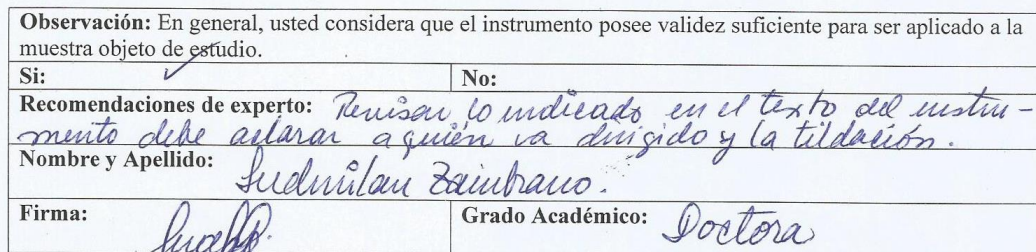 Observación: En general, usted considera que el instrumento posee validez suficiente para ser aplicado a la
muestra objeto de estudio.
Si: ✓ No:
Recomendaciones de experto: Revisar lo indicado en el texto del instru-
mento debe aclarar a quién va dirigido y la tildación.
Nombre y Apellido:
Ludmilan Zambrano.
Firma: Grado Académico: Doctora